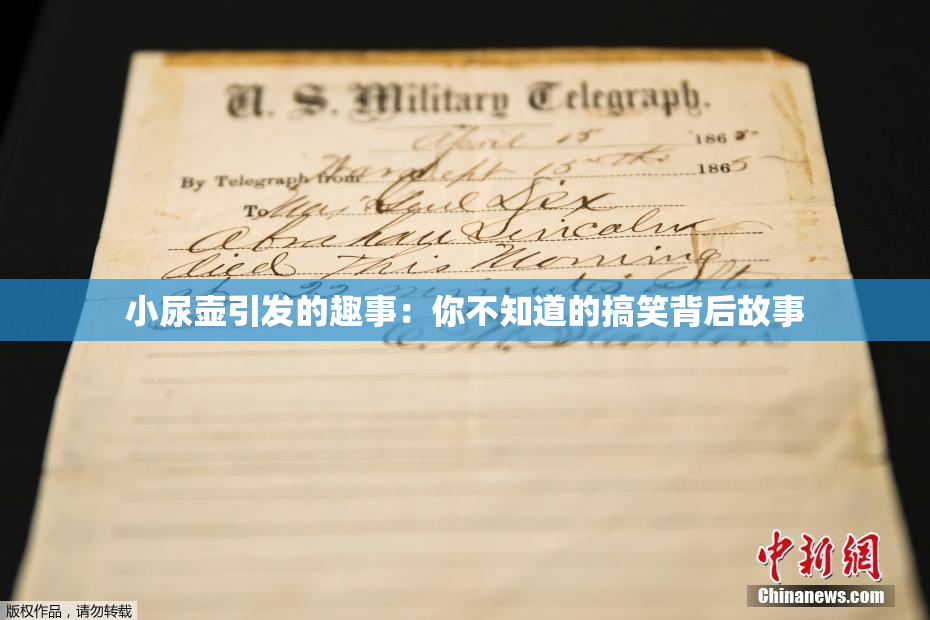 U. S. Military Telegraph.
April 15 1865
By Telegraph from War Dept 15th 1865
To Maj Genl Dix
Abraham Lincoln
died This Morning
at 22 minutes after
小尿壶引发的趣事：你不知道的搞笑背后故事
E. M. Stanton
中新网
Chinanews.com
版权作品，请勿转载